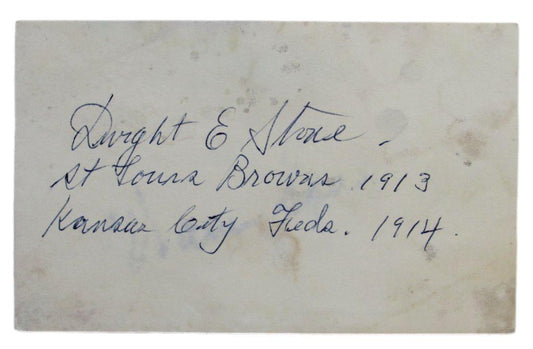 Dwight E Stone -
St Louis Browns. 1913
Kansas City Feds. 1914.